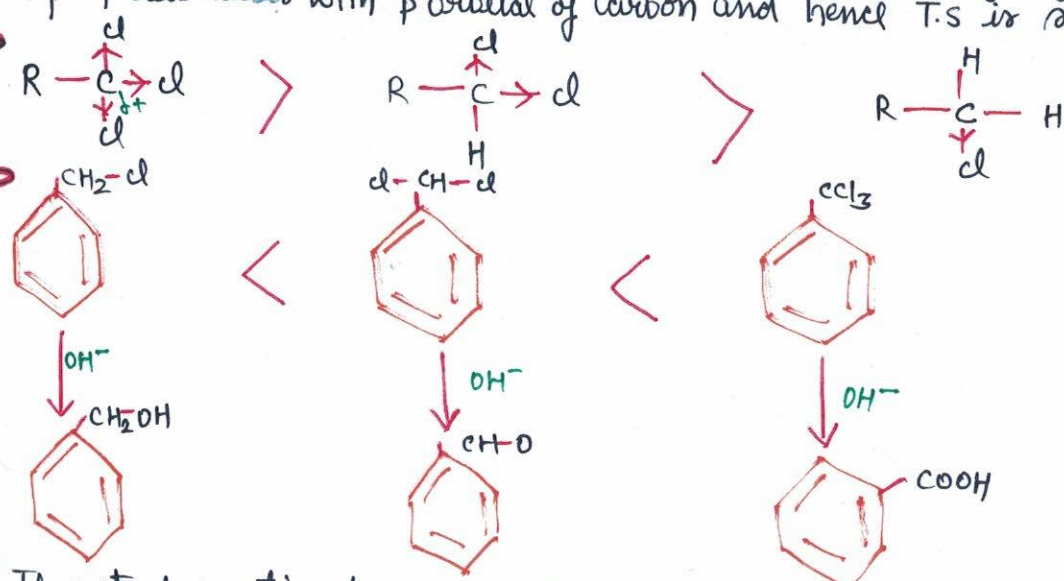 with p orbital of carbon and hence T.S is
Cl Cl
R — C → Cl > R — C → Cl > R — C — H
δ+ H
Cl H Cl
CH₂-Cl Cl-CH-Cl CCl₃
< <
OH⁻ OH⁻ OH⁻
CH₂OH CH-O COOH